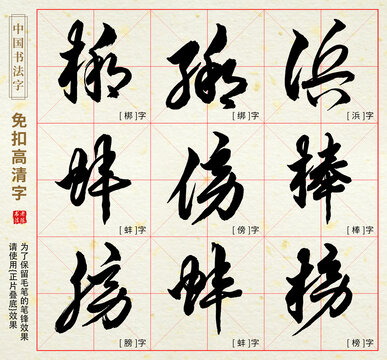 中国书法字
免扣高清字
为了保留毛笔的笔锋效果
请使用[正片叠底]效果
梆 绑 浜
[梆]字 [绑]字 [浜]字
蚌 傍 棒
[蚌]字 [傍]字 [棒]字
膀 蚌 榜
[膀]字 [蚌]字 [榜]字